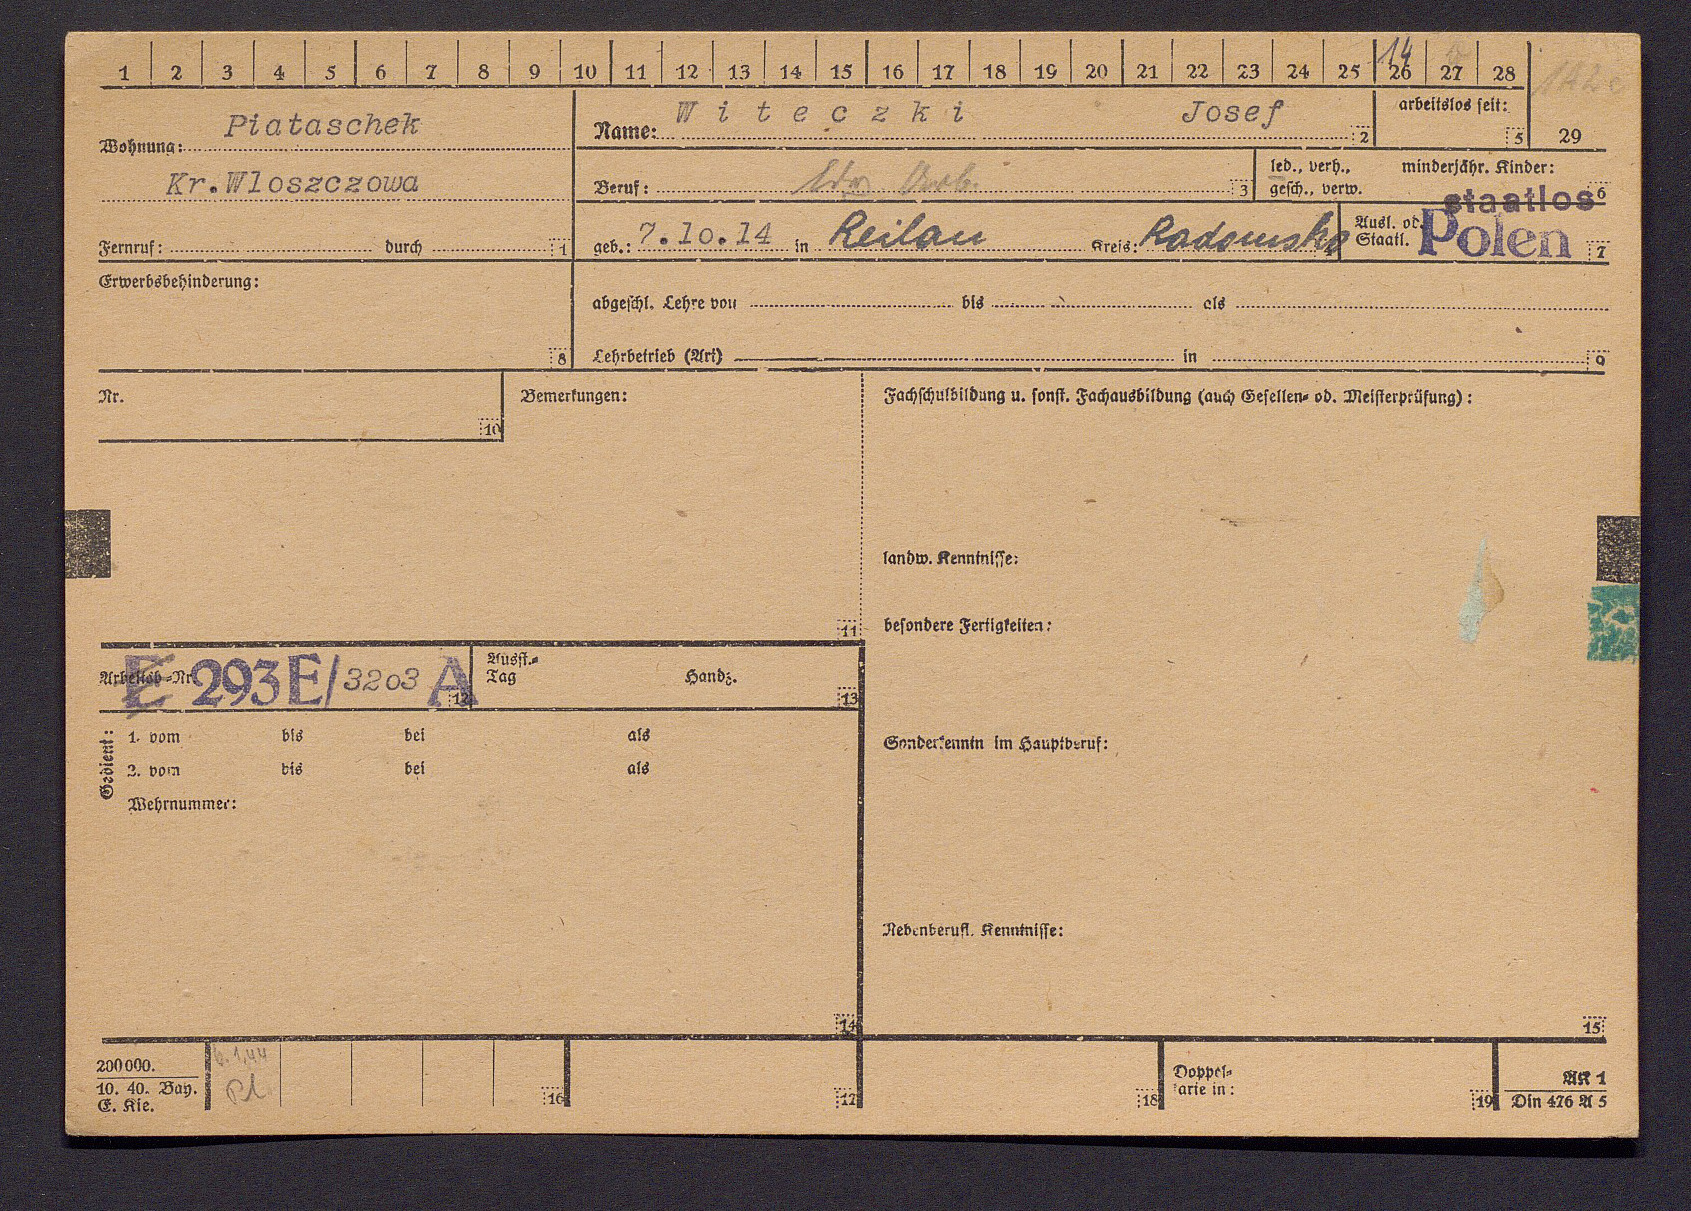 1 2 3 4 5 6 7 8 9 10 11 12 13 14 15 16 17 18 19 20 21 22 23 24 25 26 27 28
14
Wohnung: Piataschek
Kr.Wloszczowa
Fernruf: durch 1
Name: Witeczki Josef 2
arbeitslos seit: 5
29
Beruf: 3
led., verh., gesch., verw.
minderjähr. Kinder: 6
staatlos
geb.: 7.10.14 in Reilau Kreis: Radomsko 4
Ausl. od. Staatl. Polen 7
Erwerbsbehinderung: 8
abgeschl. Lehre von bis als
Lehrbetrieb (Art) in 9
Nr. 10
Bemerkungen: 11
Fachschulbildung u. sonst. Fachausbildung (auch Gesellen- od. Meisterprüfung):
landw. Kenntnisse:
besondere Fertigkeiten:
Arbeitsb-Nr E 293E/3203 A 12
Ausst.-Tag Handz. 13
Gedient:
1. vom bis bei als
2. vom bis bei als
Wehrnummer: 14
Sonderkenntn im Hauptberuf:
Nebenberufl. Kenntnisse: 15
200000.
10. 40. Bay.
E. Kie.
6.1.44
Pl.
16 17 18
Doppel-
karte in: 19
AK 1
Din 476 A 5